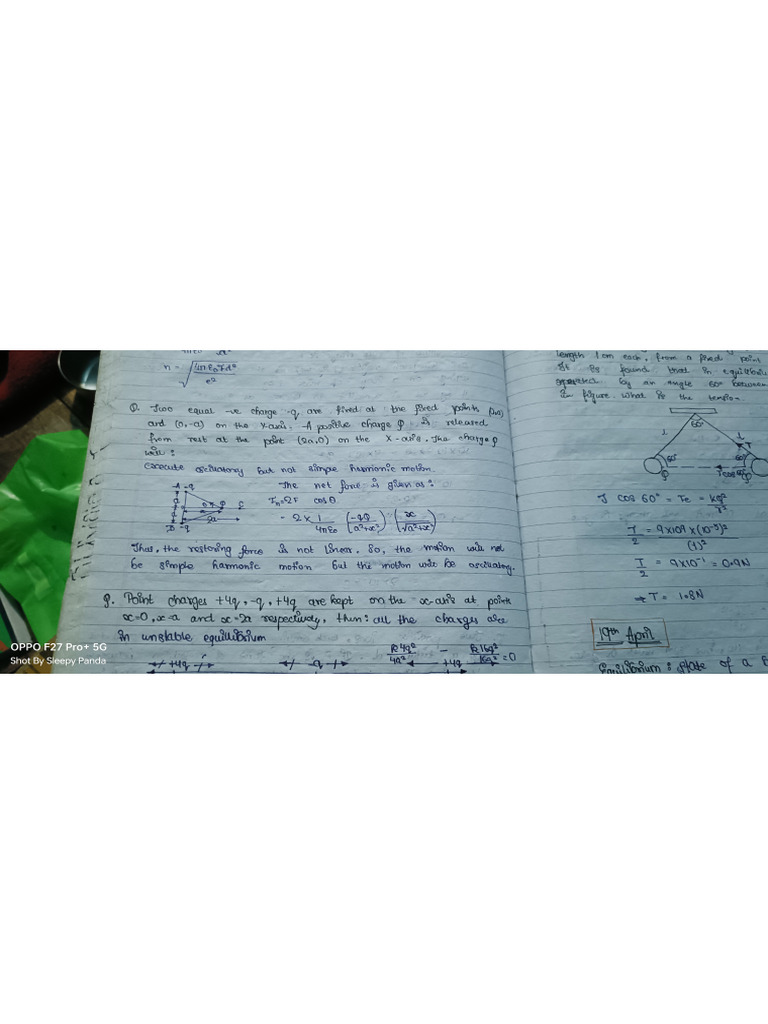 n = √(4πε₀Fd² / e²)
Q. Two equal -ve charge -q are fixed at the fixed points (0,a)
and (0,-a) on the X-axis. A positive charge Q is released
from rest at the point (2a,0) on the X-axis. The charge Q
will:
execute oscillatory but not simple harmonic motion.
A -q
B -q
2a
The net force is given as:
Fn = 2F cosθ
= 2 × 1/4πε₀ (-qQ / a²+x²) (x / √a²+x²)
Thus, the restoring force is not linear. So, the motion will not
be simple harmonic motion but the motion will be oscilatory.
Q. Point charges +4q, -q, +4q are kept on the x-axis at points
x=0, x=a and x=2a respectively, then: all the charges are
in unstable equilibrium
+4q
-q
k4q²/4a² - k16q²/16a² = 0
+4q
length 1cm each, from a fixed point
It is found that in equilibri
by an angle 60° between
In figure. What is the tension
60°
T
60°
60°
T cos 60° = Te = kq²/r²
T/2 = 9×109×(10⁻⁵)² / (1)²
T/2 = 9×10⁻¹ = 0.9N
⇒ T = 1.8N
19th April
Equilibrium: State of a
OPPO F27 Pro+ 5G
Shot By Sleepy Panda